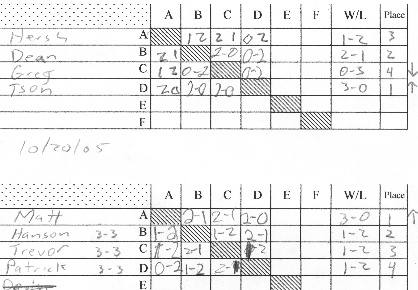 A B C D E F W/L Place
Hersh A 1 2 2 1 0 2 1-2 3
Dean B 2 1 2-0 0-2 2-1 2
Greg C 1 2 0-2 0-2 0-3 4 ↓
Tson D 2 0 2-0 2-0 3-0 1 ↑
E
F
10/20/05
A B C D E F W/L Place
Matt A 2-1 2-1 2-0 3-0 1 ↑
Hanson 3-3 B 1-2 1-2 2-1 1-2 2
Trevor 3-3 C 1-2 2-1 1-2 3
Patrick 3-3 D 0-2 1-2 1-2 4
E